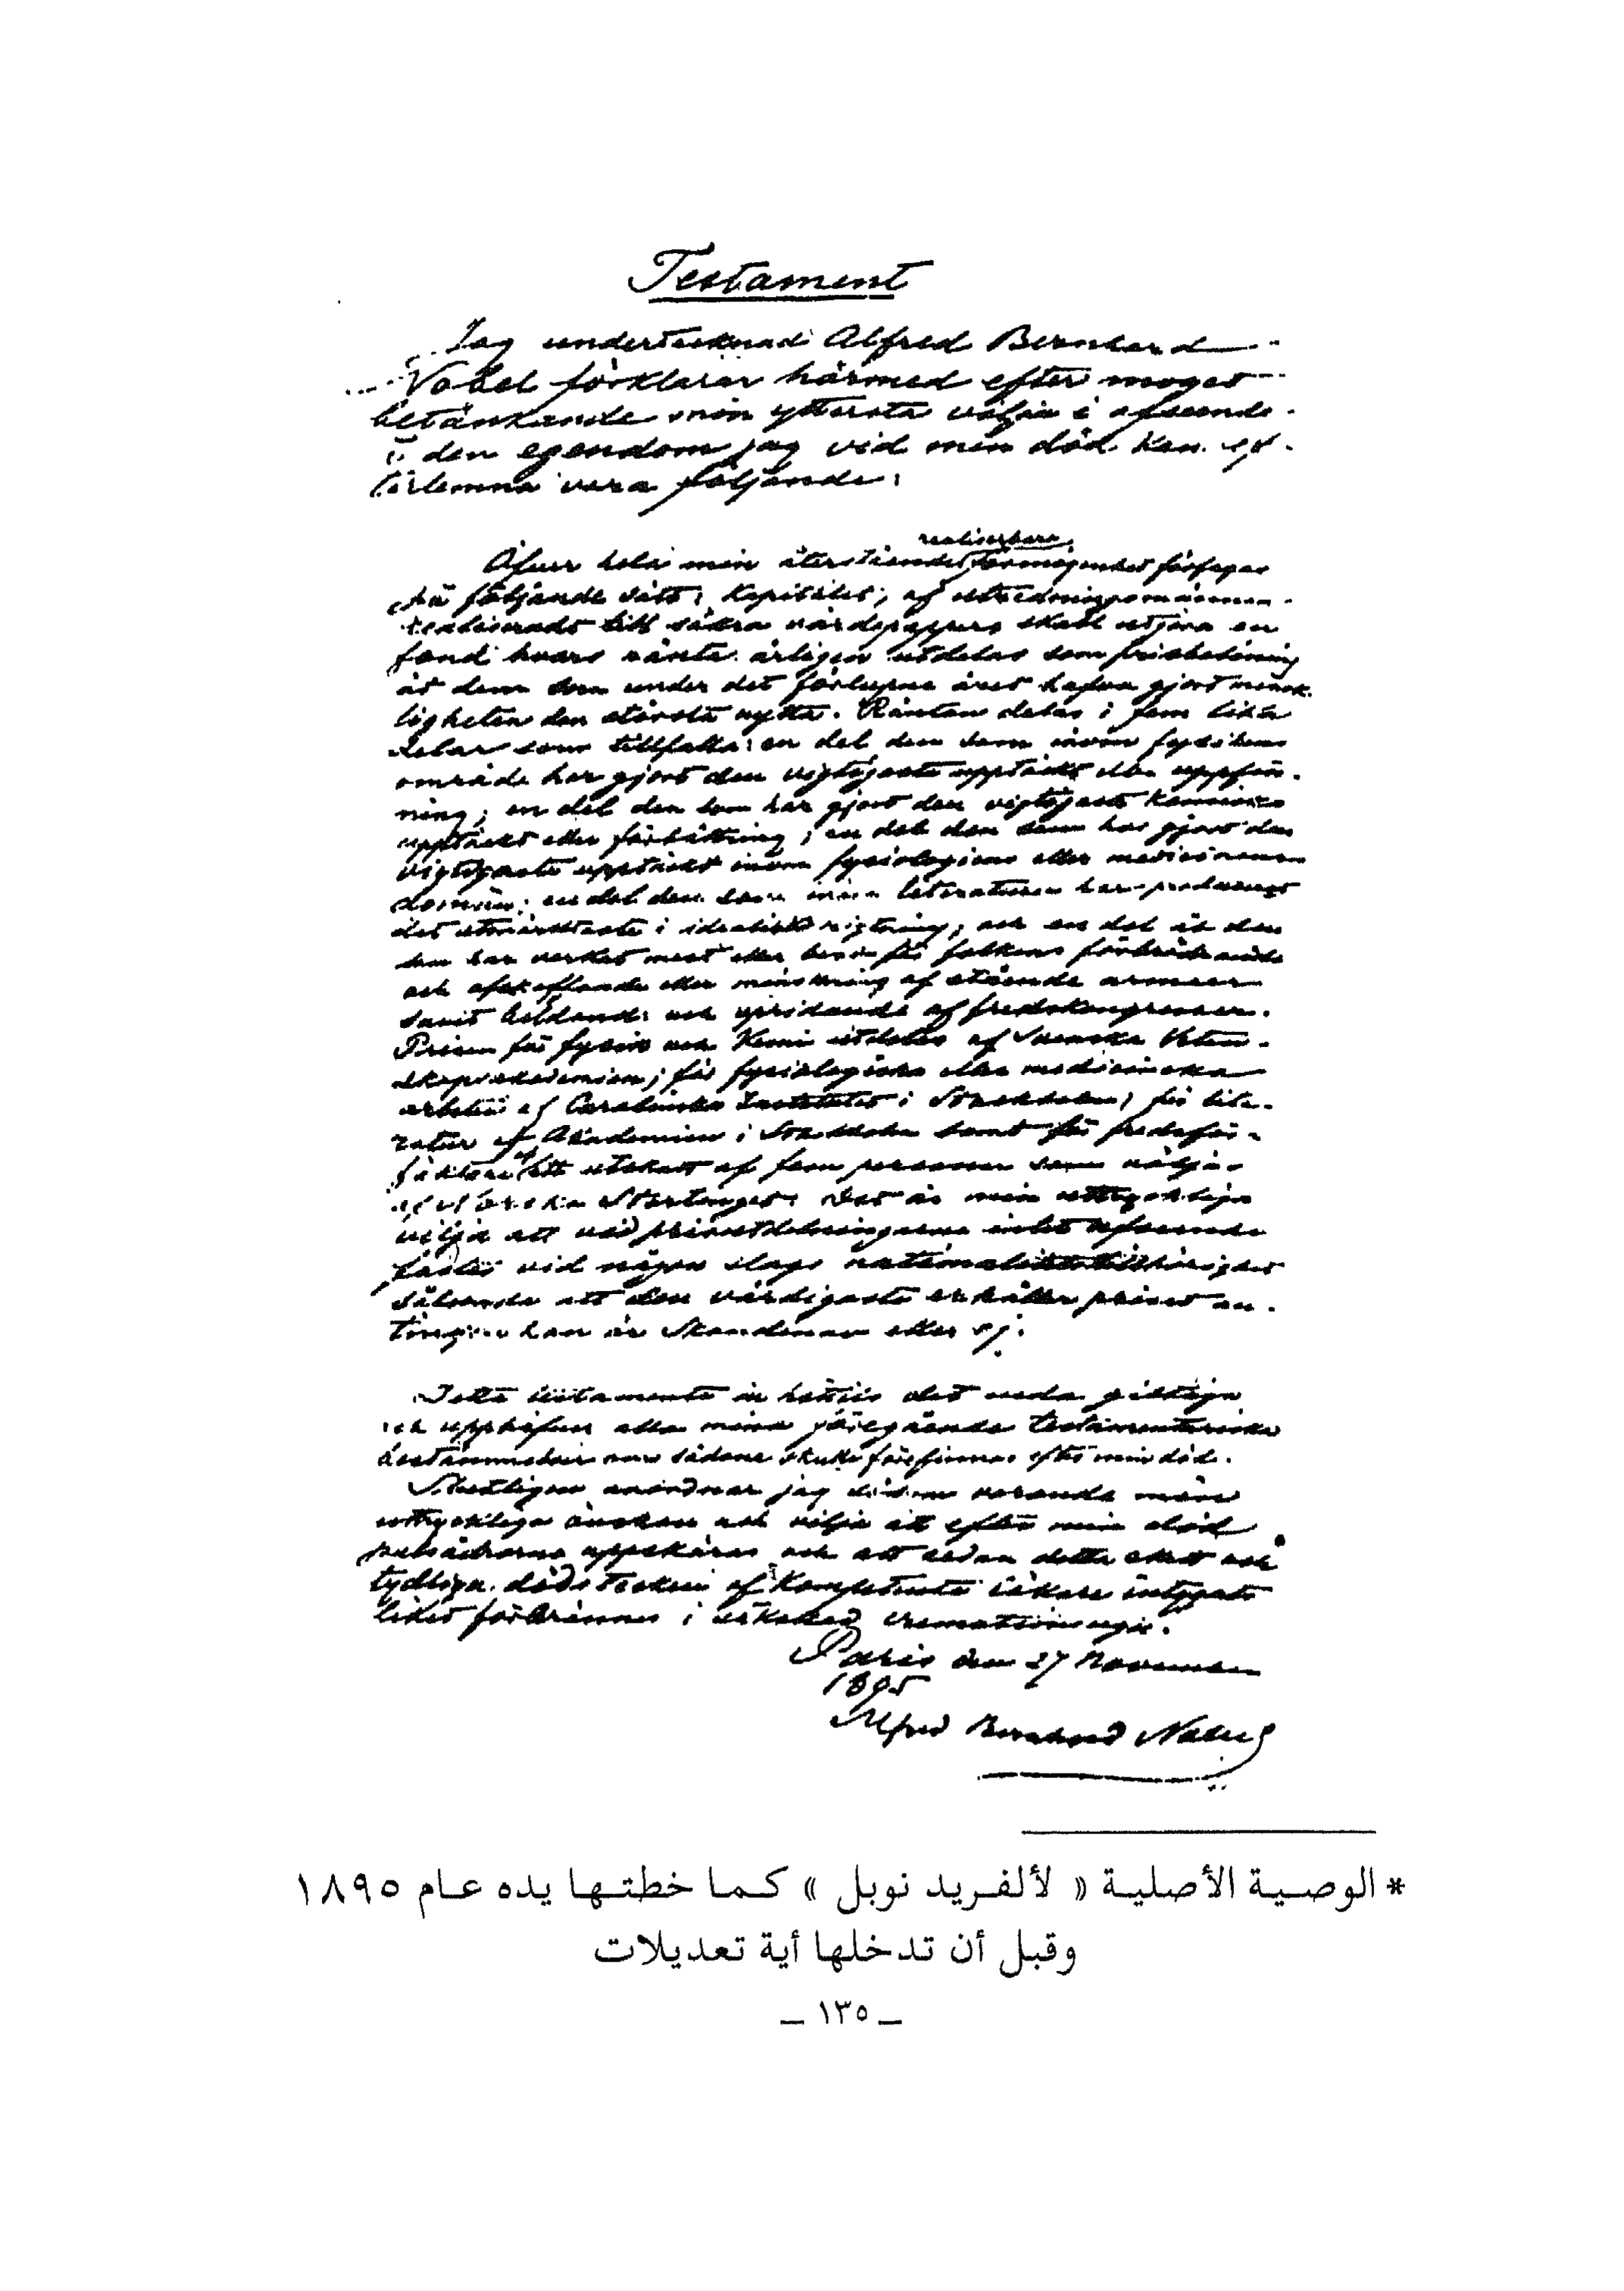 Testament
Jag undertecknad Alfred Bernhard
Nobel förklarar härmed efter moget
betänkande min yttersta vilja i afseende
å den egendom jag vid min död kan ef-
terlemna vara följande:
realiserbara
Öfver hela min återstående förmögenhet förfogas
på följande sätt: kapitalet, af utredningsmännen
realiserade till säkra värdepapper skall utgöra en
fond hvars ränta årligen utdelas som prisbelöning
åt dem som under det förlupne året hafva gjort mensk-
ligheten den största nytta. Räntan delas i fem lika
delar som tillfalla: en del den som inom fysikens
område har gjort den vigtigaste upptäckt eller uppfin-
ning; en del den som har gjort den vigtigaste kemiska
upptäckt eller förbättring; en del den som har gjort den
vigtigaste upptäckt inom fysiologiens eller medicinens
domän; en del den som inom literaturen har producerat
det utmärktaste i idealisk rigtning; och en del åt den
som har verkat mest eller best för folkens förbrödrande
och afskaffande eller minskning af stående armeer
samt bildande och spridande af fredskongresser.
Prisen för fysik och kemi utdelas af Svenska Veten-
skapsakademien; för fysiologiska eller medicinska
arbeten af Carolinska Institutet i Stockholm; för lite-
ratur af Akademien i Stockholm samt för fredsför-
fäktare af ett utskott af fem personer som väljas
af Norska Stortinget. Det är min uttryckliga
vilja att vid prisutdelningarne intet afseende
fästes vid någon slags nationalitetstillhörighet
sålunda att den värdigaste erhåller priset an-
tingen han är Skandinav eller ej.
Detta testamente är hittills det enda giltiga
och upphäfver alla mina föregående testamentariska
bestämmelser om sådane skulle förefinnas efter min död.
Slutligen anordnar jag såsom varande min
uttryckliga önskan och vilja att efter min död
pulsådrorna uppskäras och att sedan detta skett och
tydliga dödstecken af kompetenta läkare intygats
liket förbrännes i såkallad cremationsugn.
Paris den 27 November
1895
Alfred Bernhard Nobel
* الوصية الأصلية « لألفريد نوبل » كما خطتها يده عام ١٨٩٥
وقبل أن تدخلها أية تعديلات
ـ ١٣٥ ـ